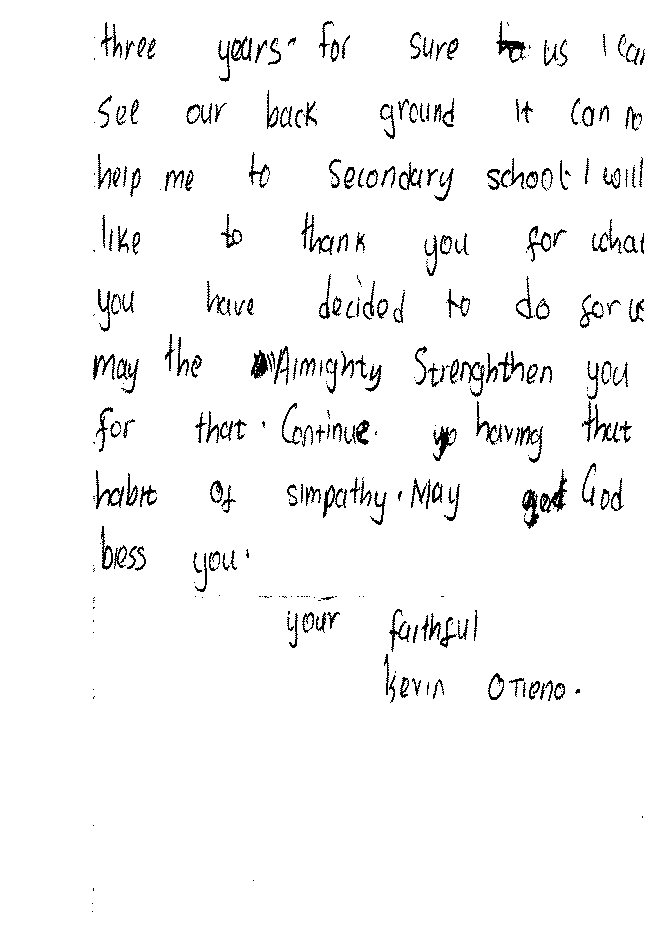 three years. for sure us I can
See our back ground it can no
help me to Secondary school. I will
like to thank you for what
you have decided to do for us
may the Almighty Strenghthen you
for that. Continue. having that
habit of simpathy. May God
bless you.
your faithful
Kevin Otieno.